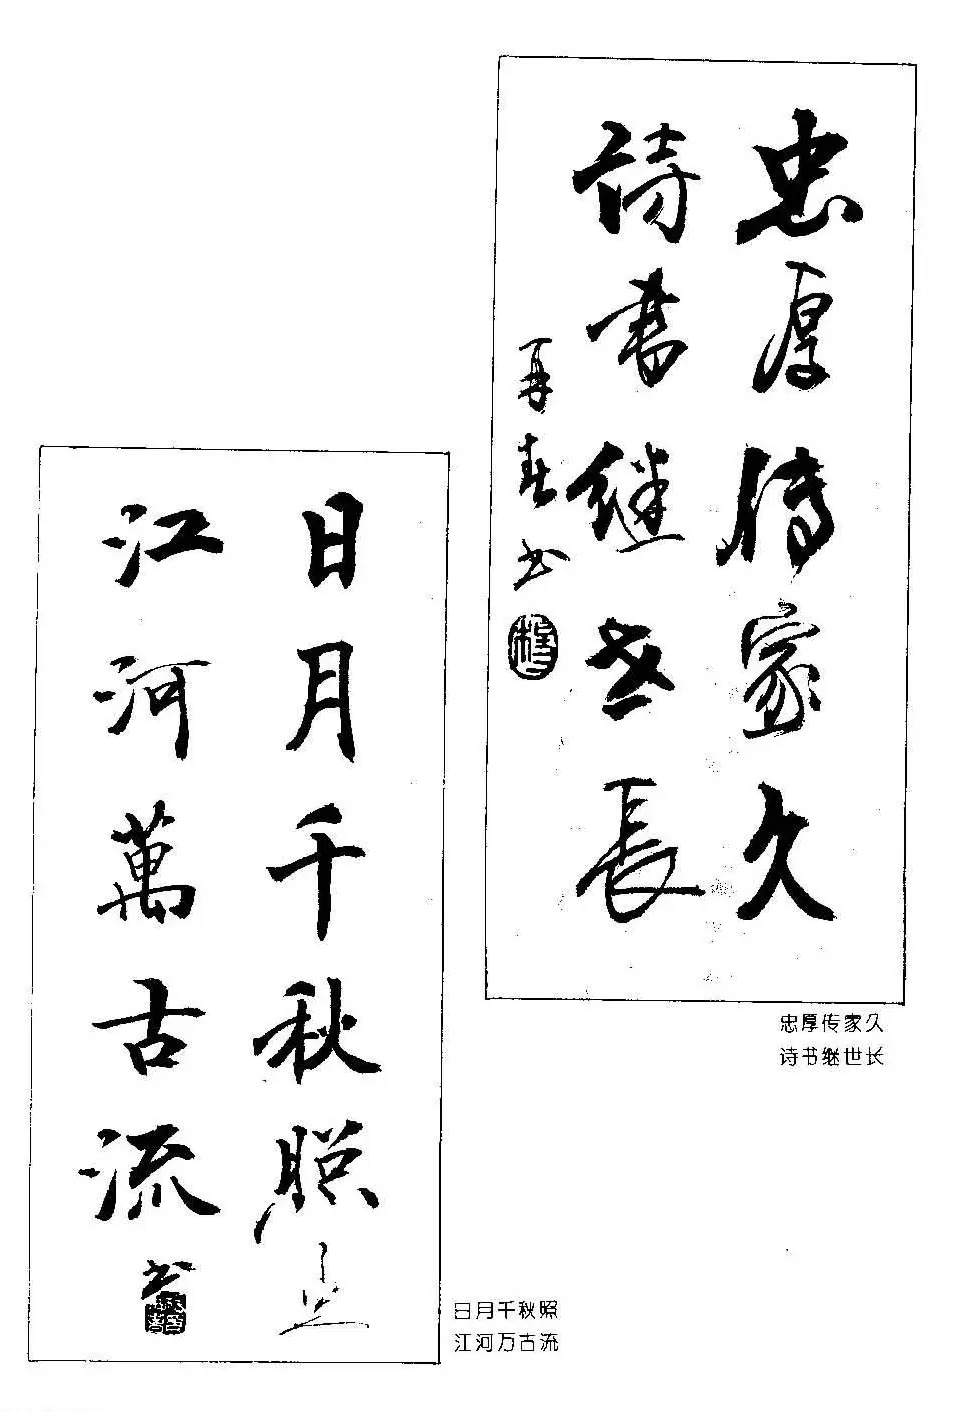 忠厚傳家久
詩書継世長
夏春书
忠厚传家久
诗书继世长
日月千秋照
江河萬古流
书
日月千秋照
江河万古流